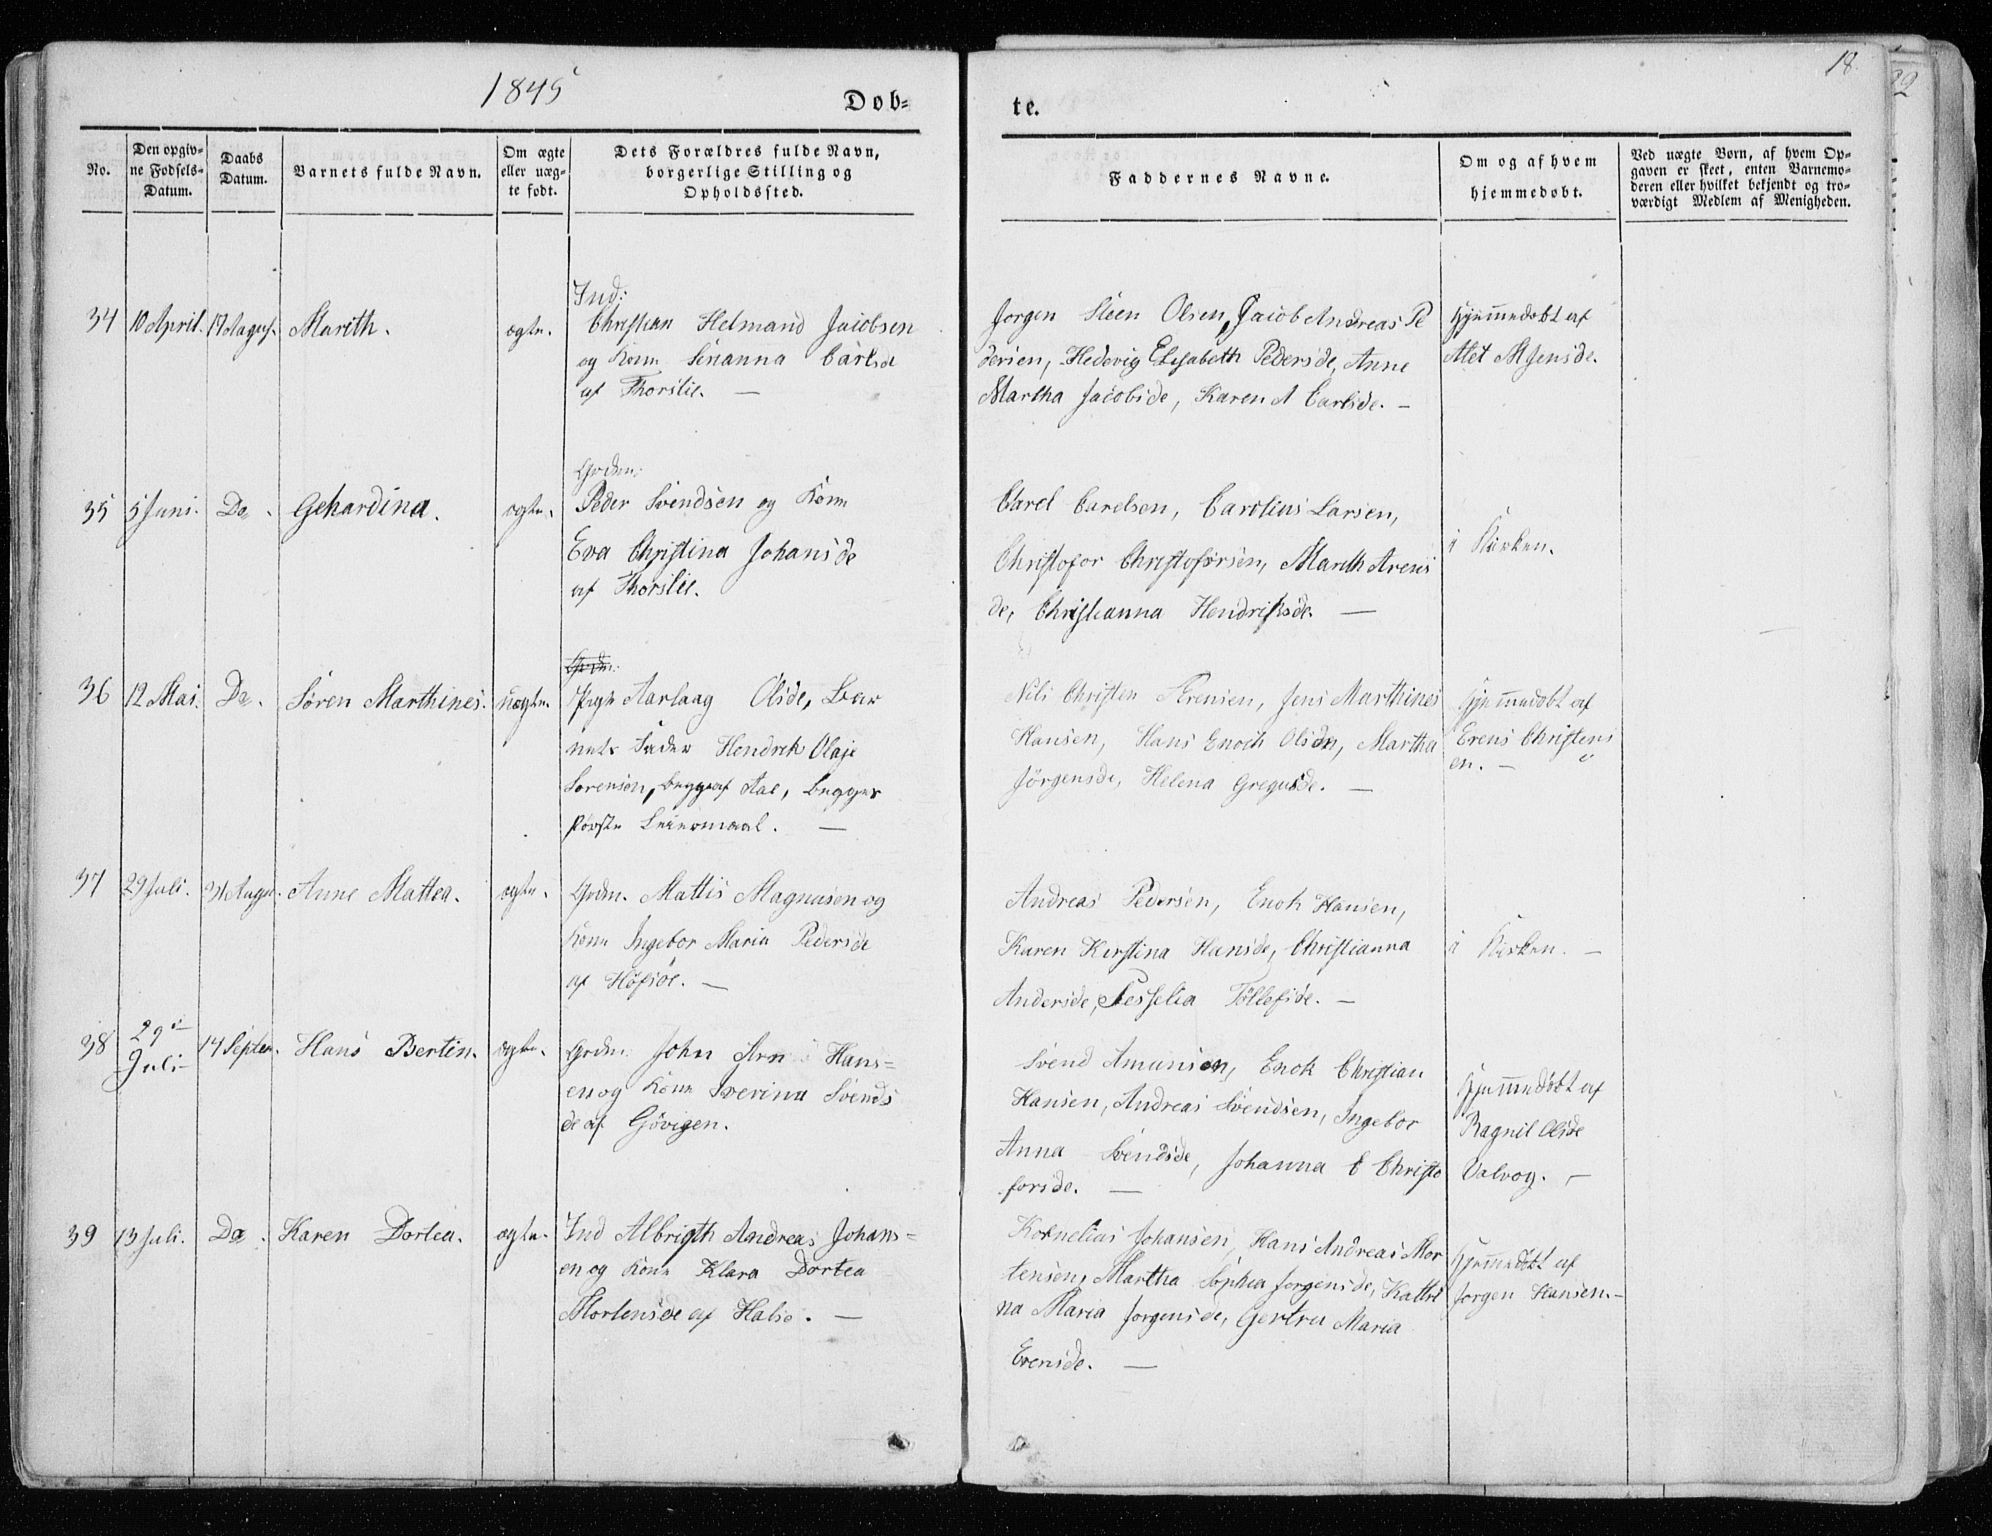 1845
Døb=
te.
18
22
No.
Den opgiv=
ne Fødsels=
Datum.
Daabs
Datum.
Barnets fulde Navn.
Om ægte
eller uæg=
te født.
Dets Forældres fulde Navn,
borgerlige Stilling og
Opholdssted.
Faddernes Navne.
Om og af hvem
hjemmedøbt.
Ved uægte Børn, af hvem Op=
gaven er skeet, enten Barnemo=
deren eller hvilket bekjendt og tro=
værdigt Medlem af Menigheden.
34 10 April. 17 August. Marith. ægte.
Ind:
Christian Helmand Jacobsen
og Kone Sirianna Carlsd
af Thorslie. —
Jørgen Steen Olsen, Jacob Andreas Pe
dersen, Hedevig Elisabeth Pedersde, Anne
Martha Jacobsde, Karen A Carlsde. —
Hjemmedøbt af
Alet M Jensde.
35 5 Juni. Do. Gehardina. ægte.
Grdm:
Peder Svendsen og Kone
Eva Christina Johansde
af Thorslie.
Carel Carelsen, Carolius Larsen,
Christofor Christofersen, Marith Arens
de, Christianna Hendriksde. —
i Kirken.
36 12 Mai. Do. Søren Marthines. uægte.
Pige Aarlaag Olsde, Bar
nets Fader Hendrik Olaje
Sørensen, begge af Aae, begges
første Leiermaal. —
Nils Christen Ærensen, Jens Marthines
Hansen, Hans Enoch Olsen, Martha
Jörgensde, Helena Gregusde. —
Hjemmedøbt af
Erens Christens
en. —
37 29 Juli. 31 August. Anne Mattea. ægte.
Grdm. Mattis Magnusen og
Kone Ingebor Maria Pedersde
af Höfsöe. —
Andreas Pedersen, Enok Hansen,
Karen Kerstina Hansde, Christianna
Andersde, Sesselia Tøllefsde. —
i Kirken. —
38 29de
Juli 14 Septem. Hans Bertin. ægte.
Grdm: John Arn Hans=
en og Kone Sverina Svends
de af Gövigen.
Svend Amunsen, Enok Christian
Hansen, Andreas Svendsen, Ingebor
Anna Svendsde, Johanna E Christo
forsde. —
Hjemmedøbt af
Ragnil Olsde
Valvog. —
39 13 Juli. Do. Karen Dortea. ægte.
Ind Albrigth Andreas Johans=
en og Kone Klara Dortea
Mortensde af Halsø. —
Kornelias Johansen, Hans Andreas Mor
tensen, Martha Sophia Jørgensde, Kathri
na Maria Jorgensde, Gertru Maria
Erensde. —
Hjemmedøbt af
Jørgen Hansen. —